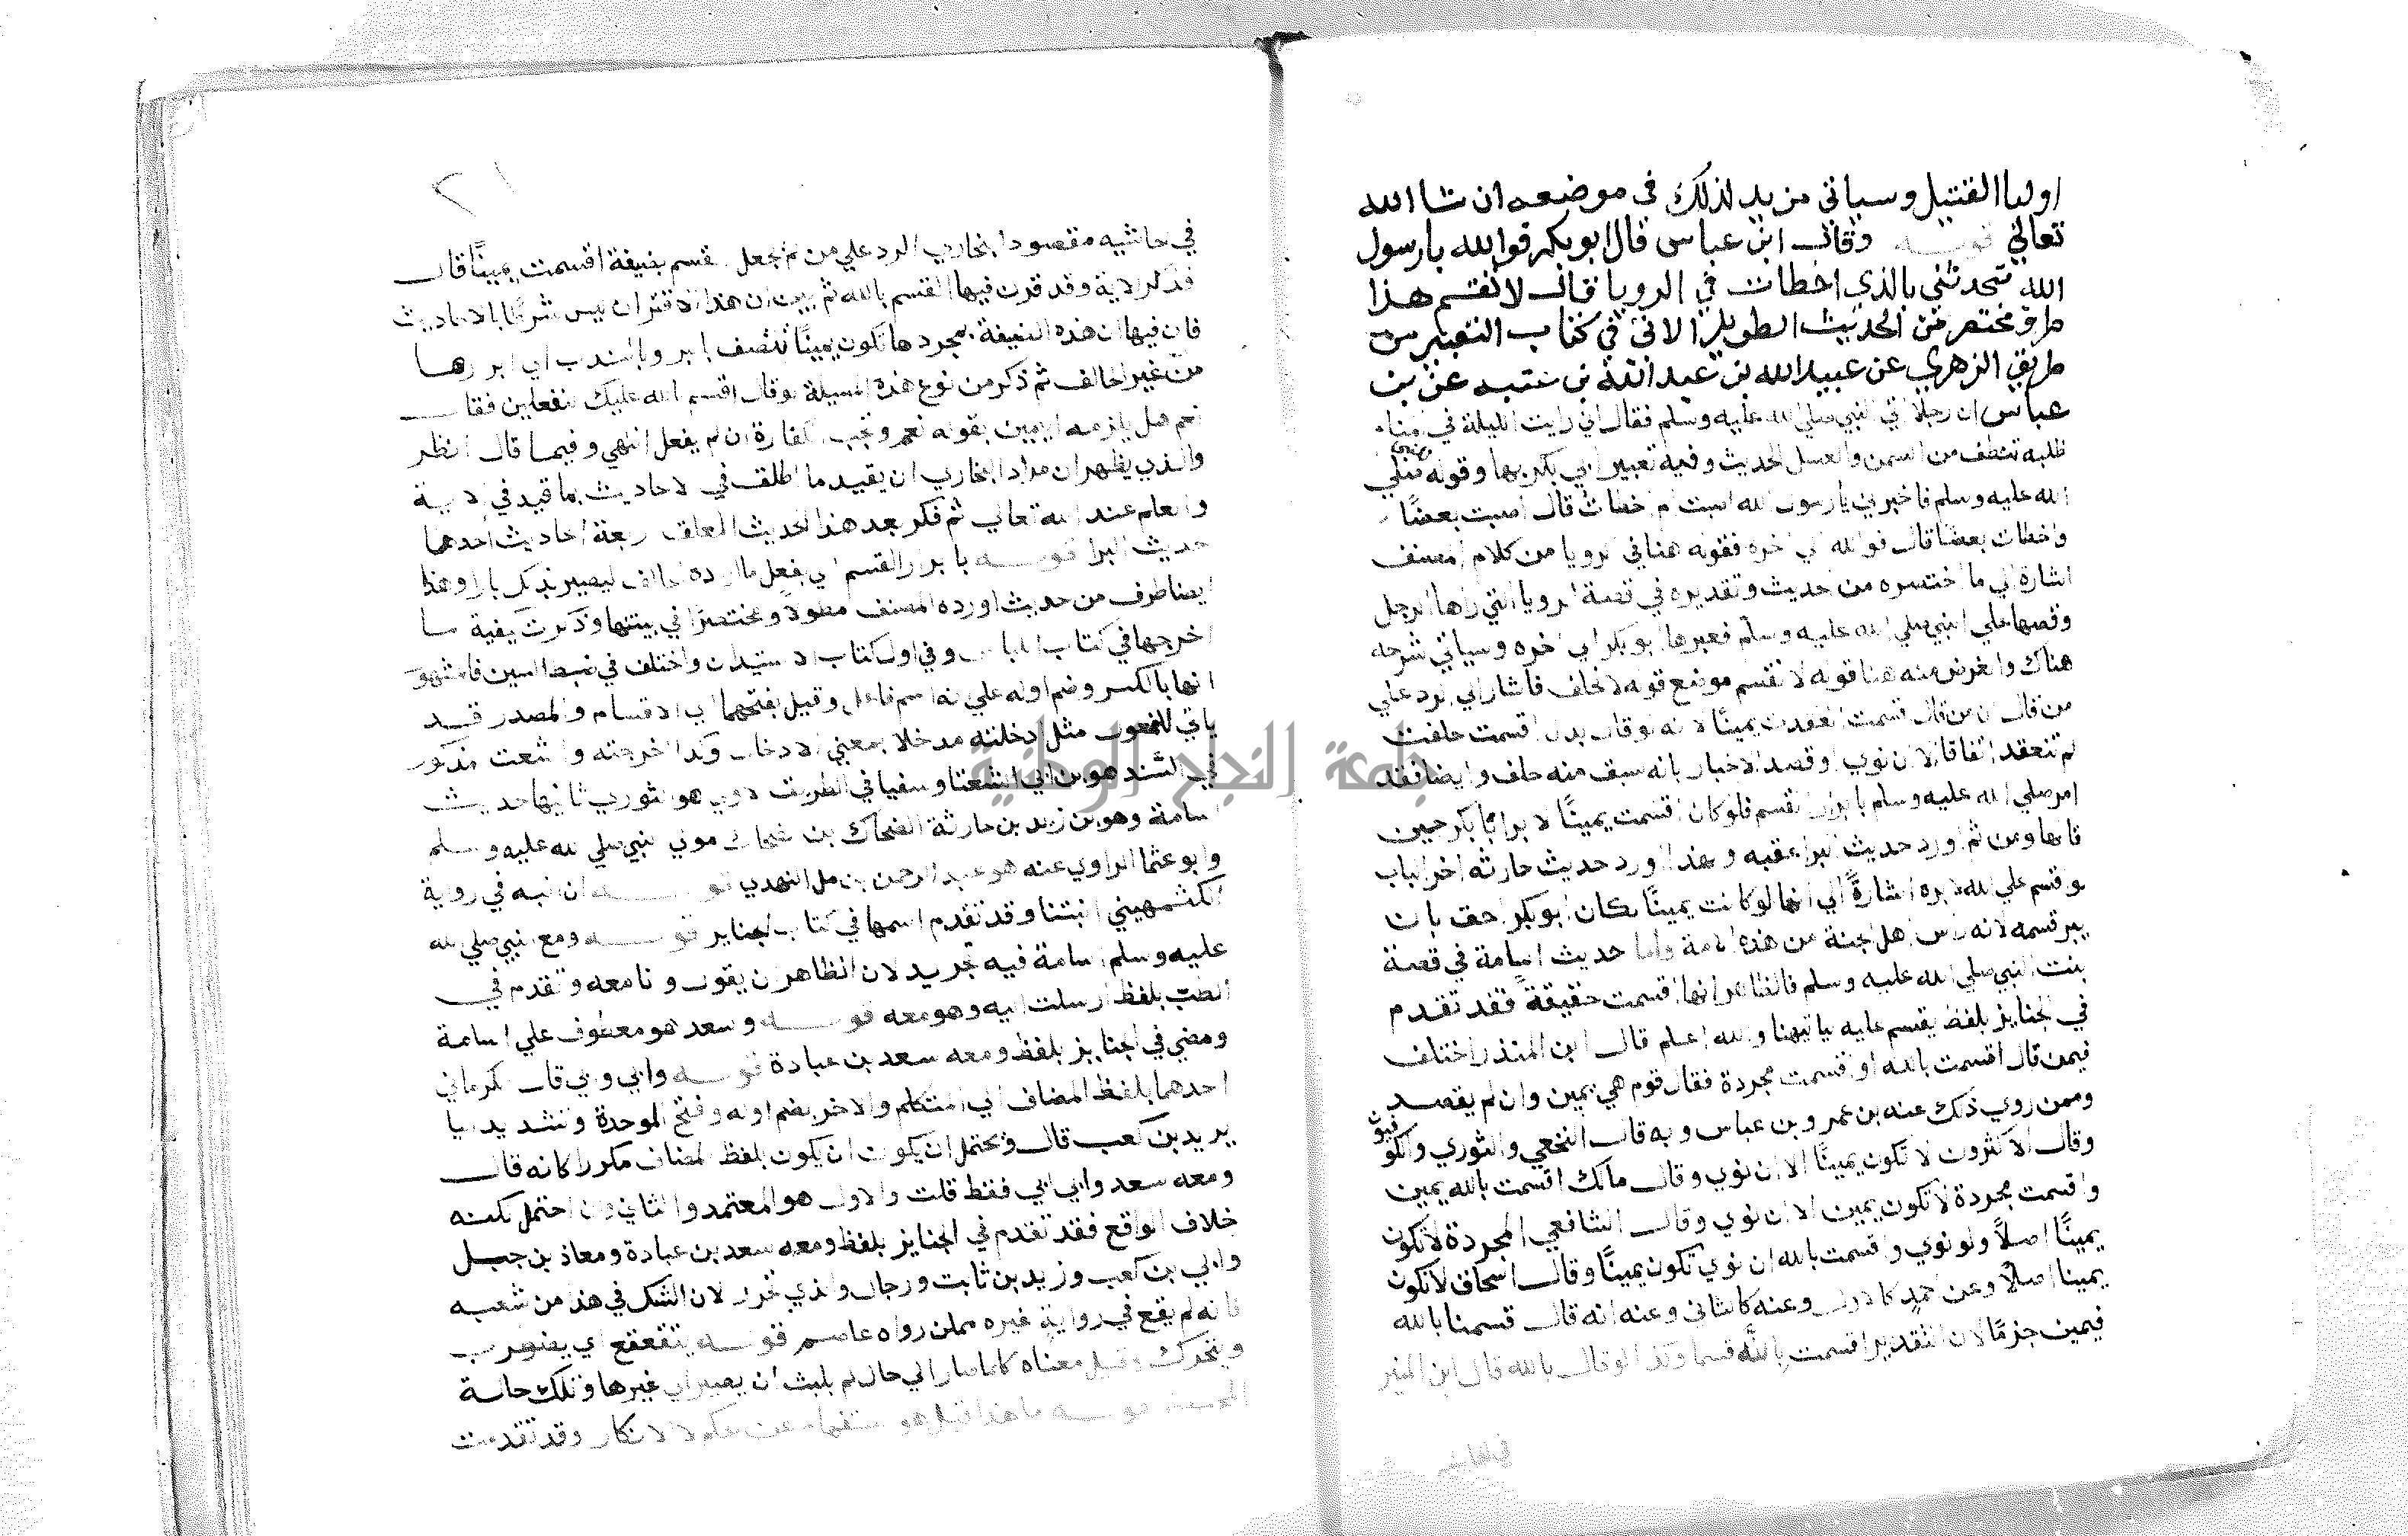 اوليا القتيل وسياتي مزيد لذلك في موضعه ان شا الله
تعالي قوله وقال ابن عباس قال ابو بكر فوالله يا رسول
الله لتحدثني بالذي اخطات في الرويا قال لا تقسم هذا
طرف مختصر من الحديث الطويل الاتي في كتاب التعبير من
طريق الزهري عن عبيد الله بن عبد الله بن عتبه عن بن
عباس ان رجلا اتي النبي صلي الله عليه وسلم فقال اني رايت الليلة في المنام
ظلة تنطف من السمن والعسل الحديث وفيه تعبير ابي بكر لها وقوله للنبي صلي
الله عليه وسلم فاخبرني يا رسول الله اصبت ام اخطات قال اصبت بعضًا
واخطات بعضًا قال فوالله الي اخره فقوله هنا في الرويا من كلام المصنف
اشارة الي ما اختصره من الحديث وتقديره في قصة الرويا التي راها الرجل
وقصها علي النبي صلي الله عليه وسلم فعبرها ابو بكر الي اخره وسياتي شرحه
هناك والغرض منه هنا قوله لا تقسم موضع قوله لا تحلف فاشار الي الرد علي
من قال ان من قال اقسمت انعقدت يمينًا لانه لو قال بدل اقسمت حلفت
لم تنعقد اتفاقا الا ان نوي او قصد الاخبار بانه سبق منه حلف وايضا فقد
امر صلي الله عليه وسلم بابرار القسم فلو كان اقسمت يمينًا لابر ابا بكر حين
قالها ومن ثم اورد حديث البرا عقبه ولهذا اورد حديث حارثه اخر الباب
لو اقسم علي الله لابره اشارةً الي انها لو كانت يمينًا لكان ابو بكر احق بان
يبر قسمه لانه راس اهل الجنة من هذه الامة واما حديث اسامة في قصة
بنت النبي صلي الله عليه وسلم فالظاهر انها اقسمت حقيقةً فقد تقدم
في الجنايز بلفظ يقسم عليه ياتيها والله اعلم قال ابن المنذر اختلف
فيمن قال اقسمت بالله او اقسمت مجردة فقال قوم هي يمين وان لم يقصد
وممن روي ذلك عنه بن عمر وبن عباس وبه قال النخعي والثوري والكوفيون
وقال الاكثرون لا تكون يمينًا الا ان نوي وقال مالك اقسمت بالله يمين
واقسمت مجردة لا تكون يمين الا ان نوي وقال الشافعي المجردة لا تكون
يمينًا اصلاً ولو نوي واقسمت بالله ان نوي تكون يمينًا وقال اسحاق لا تكون
يمينا اصلاً وعن احمد كالاول وعنه كالثاني وعنه انه قال قسمنا بالله
فيمين جزمًا لان التقدير اقسمت بالله قسما وكذا لو قال بالله قال ابن المنير
في حاشيه
في حاشيه مقصود البخاري الرد علي من لم يجعل القسم بصيغة اقسمت يمينًا قال
فذكر الاية وقد قرن فيها القسم بالله ثم بين ان هذا الاقتران ليس شرطًا بالاحاديث
فان فيها ان هذه الصيغة بمجردها تكون يمينًا تتصف بالبر وبالندب الي ابرارها
من غير الحالف ثم ذكر من نوع هذه المسيلة لو قال اقسم الله عليك لتفعلن فقال
نعم هل يلزمه اليمين بقوله نعم وتجب الكفارة ان لم يفعل انتهي وفيما قال انظر
والذي يظهر ان مراد البخاري ان يقيد ما اطلق في الاحاديث بما قيد في الاية
والعلم عند الله تعالي ثم ذكر بعد هذا الحديث المعلق اربعة احاديث احدهما
حديث البرا قوله بابرار القسم اي بفعل ما اراده الحالف ليصير بذلك بارا وهذا
ايضا طرف من حديث اورده المصنف مطولاً ومختصرًا في بيتها وذكرت كيفية ما
اخرجها في كتاب اللباس وفي اول كتاب الاستيذان واختلف في ضبط السين فالمشهور
انها بالكسر وضم اوله علي انه اسم فاعل وقيل بفتحهما اي الاقسام والمصدر قد
ياتي للمفعول مثل ادخلته مدخلا بمعني الادخال وكذا اخرجته واشعث مذكور
في السند هو بن ابي الشعثا وسفيا في الطريق الاولي هو الثوري ثانيها حديث
اسامة وهو بن زيد بن حارثة الضحاك بن ضحاك مولي النبي صلي الله عليه وسلم
وابو عثما الراوي عنه هو عبد الرحمن بن مل النهدي قوله ان ابنه في رواية
الكشميهيني ابنتنا وقد تقدم اسمها في كتاب الجنايز قوله ومع النبي صلي الله
عليه وسلم اسامة فيه تجريد لان الظاهر ان يقول وانا معه وتقدم في
الطب بلفظ ارسلت اليه وهو معه قوله وسعد هو معطوف علي اسامة
ومضي في الجنايز بلفظ ومعه سعد بن عبادة قوله وابي وابي قال الكرماني
احدهما بلفظ المضاف الي المتكلم والاخر بضم اوله وفتح الموحدة وتشديد اليا
يريد بن كعب قال ويحتمل ان يكون ان يكون بلفظ المضاف مكررا كانه قال
ومعه سعد وابي ابي فقط قلت والاول هو المعتمد والثاني وان احتمل لكنه
خلاف الواقع فقد تقدم في الجنايز بلفظ ومعه سعد بن عبادة ومعاذ بن جبل
وابي بن كعب وزيد بن ثابت ورجال والذي تحرر لان الشك في هذا من شعبه
فانه لم يقع في رواية غيره ممن رواه عاصم قوله يتقعقع اي يضطرب
ويتحرك وقيل معناه كلما صار الي حال لم يلبث ان يصير الي غيرها وتلك حالة
المحتضر قوله ما هذا قيل هو استفهام عن الحكم لا الانكار وقد تقدمت